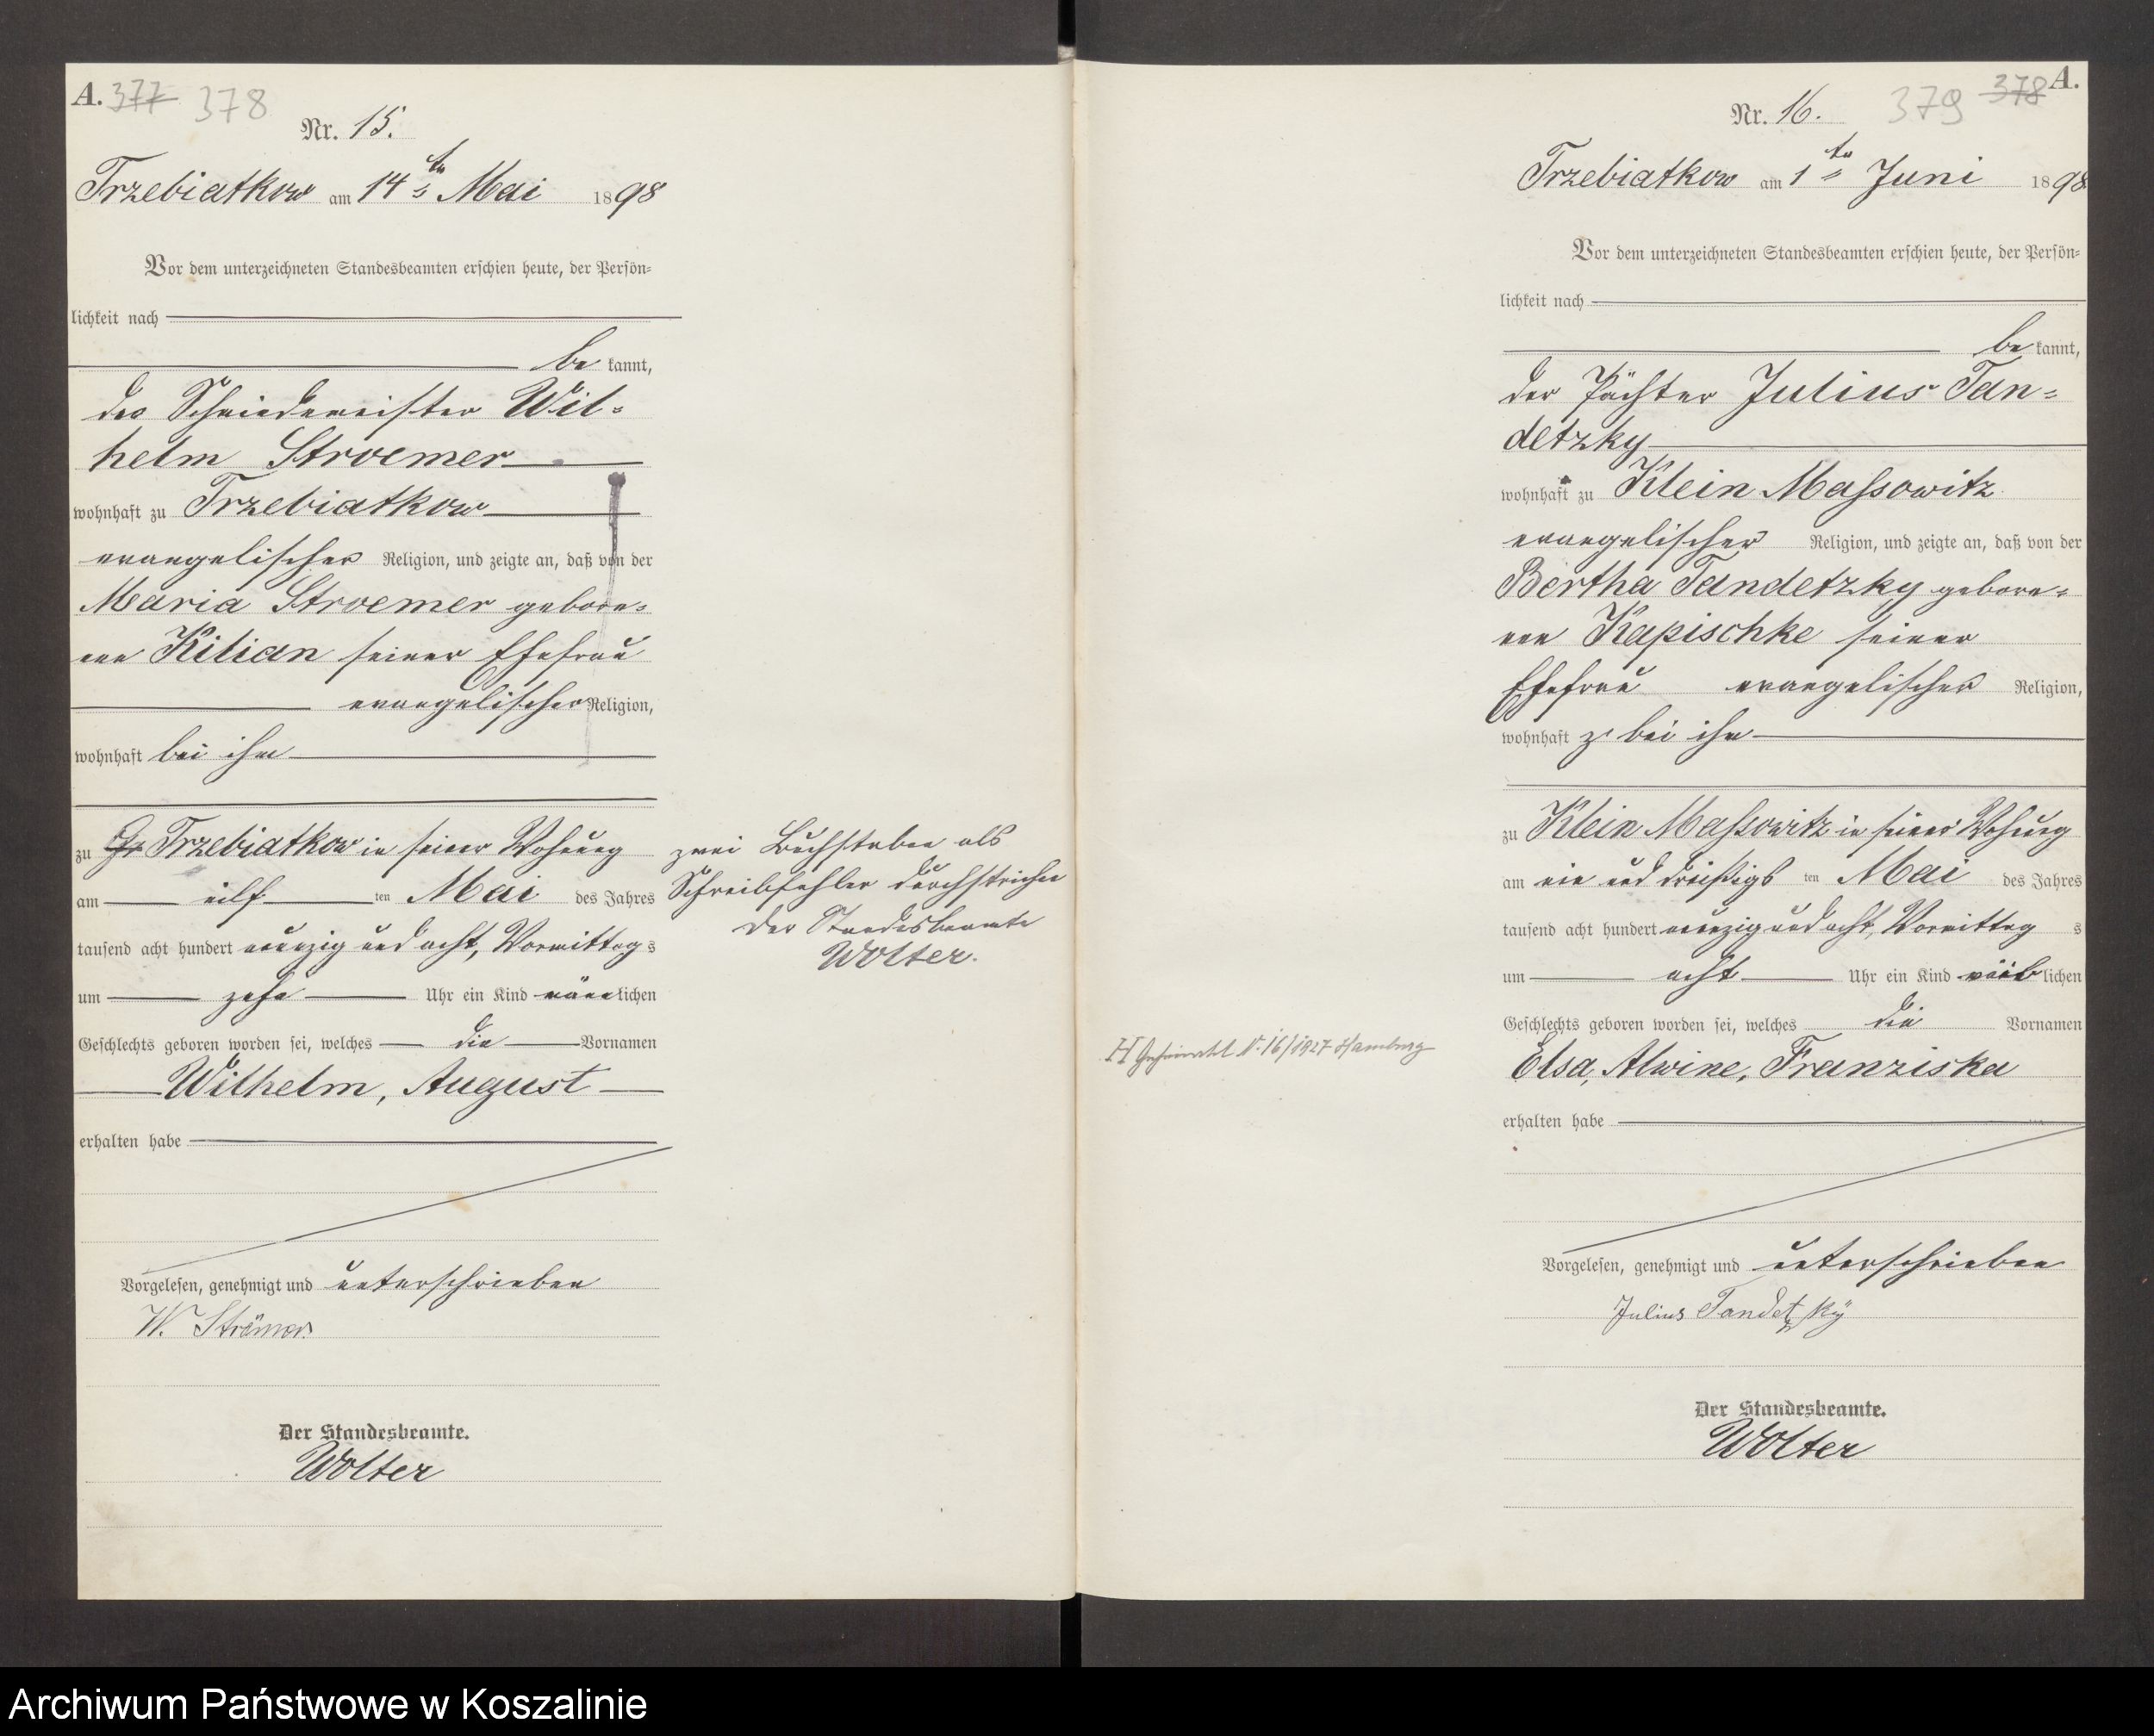 A. 377 378
Nr. 15.
Trzebiatkow am 14ten Mai 1898
Vor dem unterzeichneten Standesbeamten erschien heute, der Persön=
lichkeit nach
be kannt,
der Schmiedemeister Wil=
helm Stroemer
wohnhaft zu Trzebiatkow
evangelischer Religion, und zeigte an, daß von der
Maria Stroemer gebore=
nen Kilian seiner Ehefrau
evangelischer Religion,
wohnhaft bei ihm
zu Gr Trzebiatkow in seiner Wohnung
am eilf ten Mai des Jahres
tausend acht hundert neunzig und acht, Vormittags
um zehn Uhr ein Kind männlichen
Geschlechts geboren worden sei, welches die Vornamen
Wilhelm, August
erhalten habe
Vorgelesen, genehmigt und unterschrieben
W. Strömer
Der Standesbeamte.
Wolter
zwei Buchstaben als
Schreibfehler durchstrichen
Der Standesbeamte
Wolter.
379 378 A.
Nr. 16.
Trzebiatkow am 1ten Juni 1898
Vor dem unterzeichneten Standesbeamten erschien heute, der Persön=
lichkeit nach
be kannt,
der Pächter Julius Tan=
detzky
wohnhaft zu Klein Massowitz
evangelischer Religion, und zeigte an, daß von der
Bertha Tandetzky gebore=
nen Kapischke seiner
Ehefrau evangelischer Religion,
wohnhaft bei ihm
zu Klein Massowitz in seiner Wohnung
am ein und dreißigs ten Mai des Jahres
tausend acht hundert neunzig und acht, Vormittag s
um acht Uhr ein Kind weib lichen
Geschlechts geboren worden sei, welches die Vornamen
Elsa, Alwine, Franziska
erhalten habe
Vorgelesen, genehmigt und unterschrieben
Julius Tandetzky
Der Standesbeamte.
Wolter
H N. 16/1927 Hamburg
Archiwum Państwowe w Koszalinie